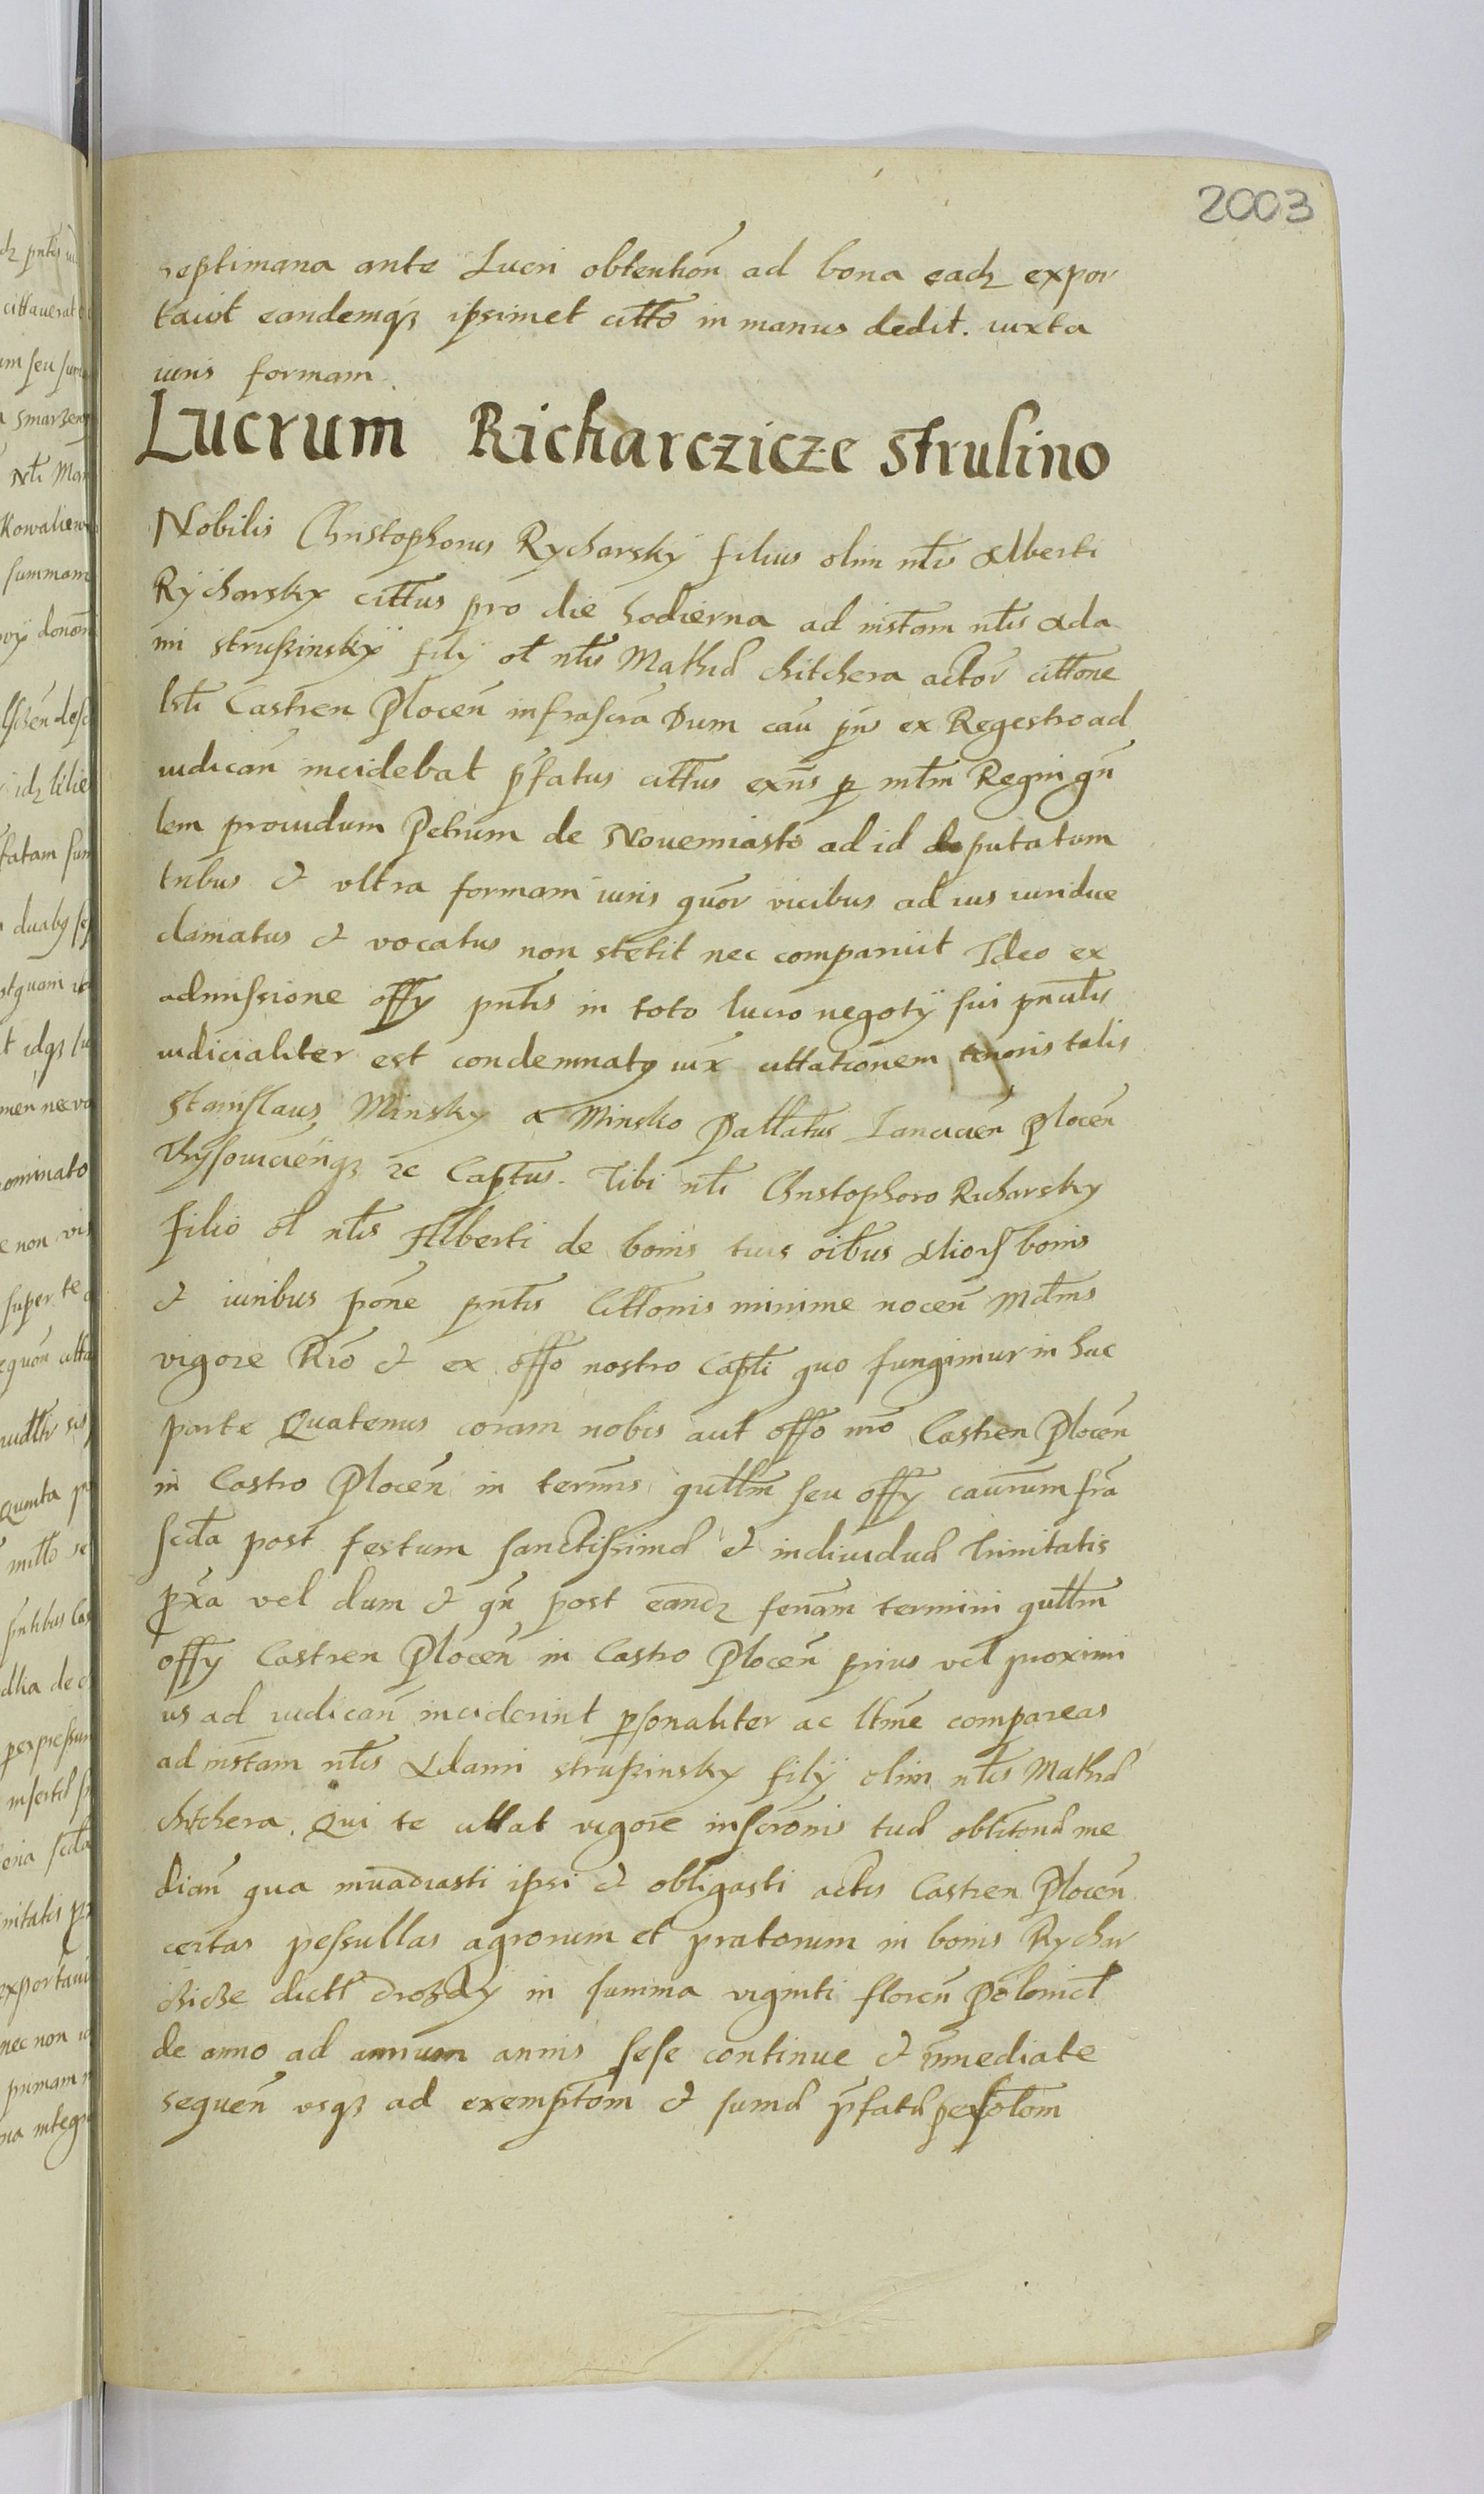 2003
septimana ante Lucri obtentiõn ad bona eadꝫ expor
tavit eandemqꝫ ipsimet citto in manus dedit. iuxta
iuris formam.
Lucrum Richarczicze Strusino
Nobilis Christophorus Rycharskÿ filius olim nlis Alberti
Rÿcharsky cittus pro die hodierna ad instam nlis Ada
mi strußinskÿ filÿ ol nlis Mathiæ chitchera actor cittone
Castren Ploceñ infrascra Dum cau pñs ex Regestro ad
iudicañ incidebat p̃fatus cittus exñs p mlm Regni gñ
lem providum Petrum de Novemiasto ad id deputatum
tribus & ultra formam iuris quõr vicibus ad ius iuridice
clamatus & vocatus non stetit nec comparuit Ideo ex
admissione offy pntis in toto lucro negotÿ sui pñalis
iudicialiter est condemnatꝯ iux̃ cittationem tenoris talis
Stanislaus Minsky a Minsko Pallatus Lanciciẽn Plocẽn
ꝛc Captus. Tibi nli Christophoro Richarsky
filio ol nlis Alberti de bonis tuis oibus bonis
& iuribus põne pntis Cittonis minime nocẽn Mdms
vigore Rio & ex offo nostro Capli quo fungimur in hac
parte Quatenus coram nobis aut offo nro Castren Plocẽn
in Castro Plocẽn in termis qullm seu offy caurum fra
scda post festum sanctissimæ & individuæ Trinitatis
px̃a vel dum & qñ post eandꝫ feriam termini qullm
offy Castren Plocẽn in Castro Plocẽn prius vel proximi
us ad iudicañ inciderint psonaliter ac ltme compareas
ad instam nlis Adami strußinsky filÿ olim nlis Mathiæ
chitchera. Qui te cittat vigore inscronis tuæ me
diañ qua invadiasti ipsi & obligasti actis Castren Plocẽn
certas pessullas agrorum et pratorum in bonis Rychar
czicze dictt drozdÿ in summa viginti floreñ Polonicl
de anno ad annum annis sese continue & immediate
sequeñ usqꝫ ad exemptom & sumæ p̃fatæ persolom